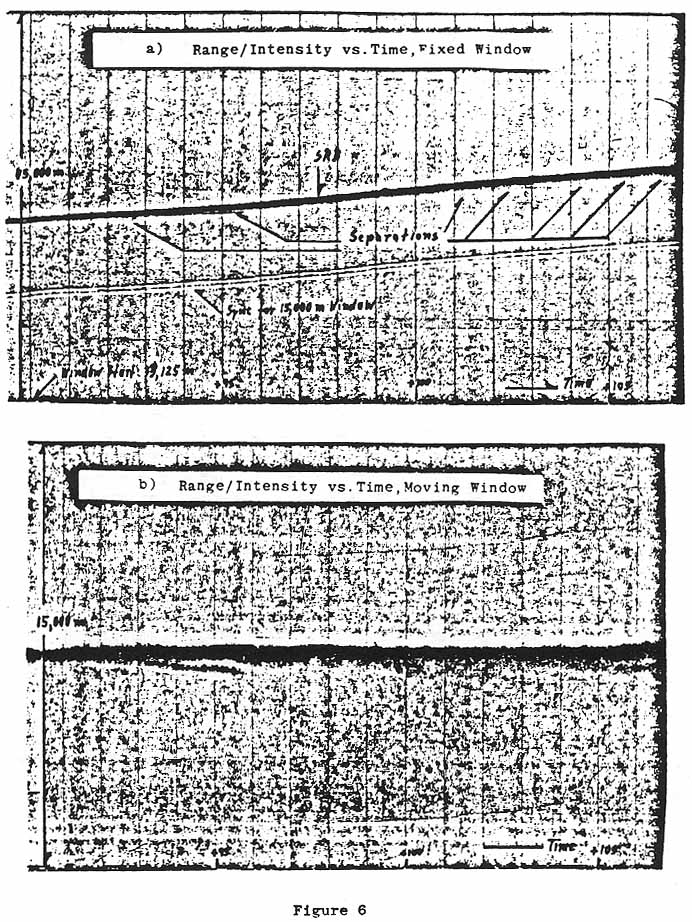 a) Range/Intensity vs.Time,Fixed Window
SRB
85,000 m
Separations
Sync for 15,000 m Window
Window Start
+95
+100
Time
+105
b) Range/Intensity vs.Time,Moving Window
15,000 m
+95
+100
Time
+105
Figure 6